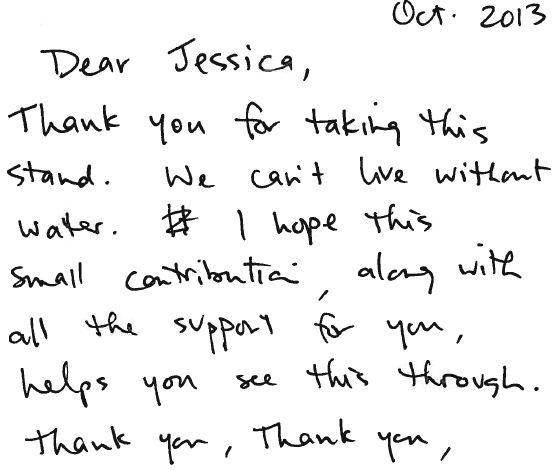 Oct. 2013
Dear Jessica,
Thank you for taking this
stand. We can't live without
water. I hope this
small contribution, along with
all the support for you,
helps you see this through.
Thank you, Thank you,